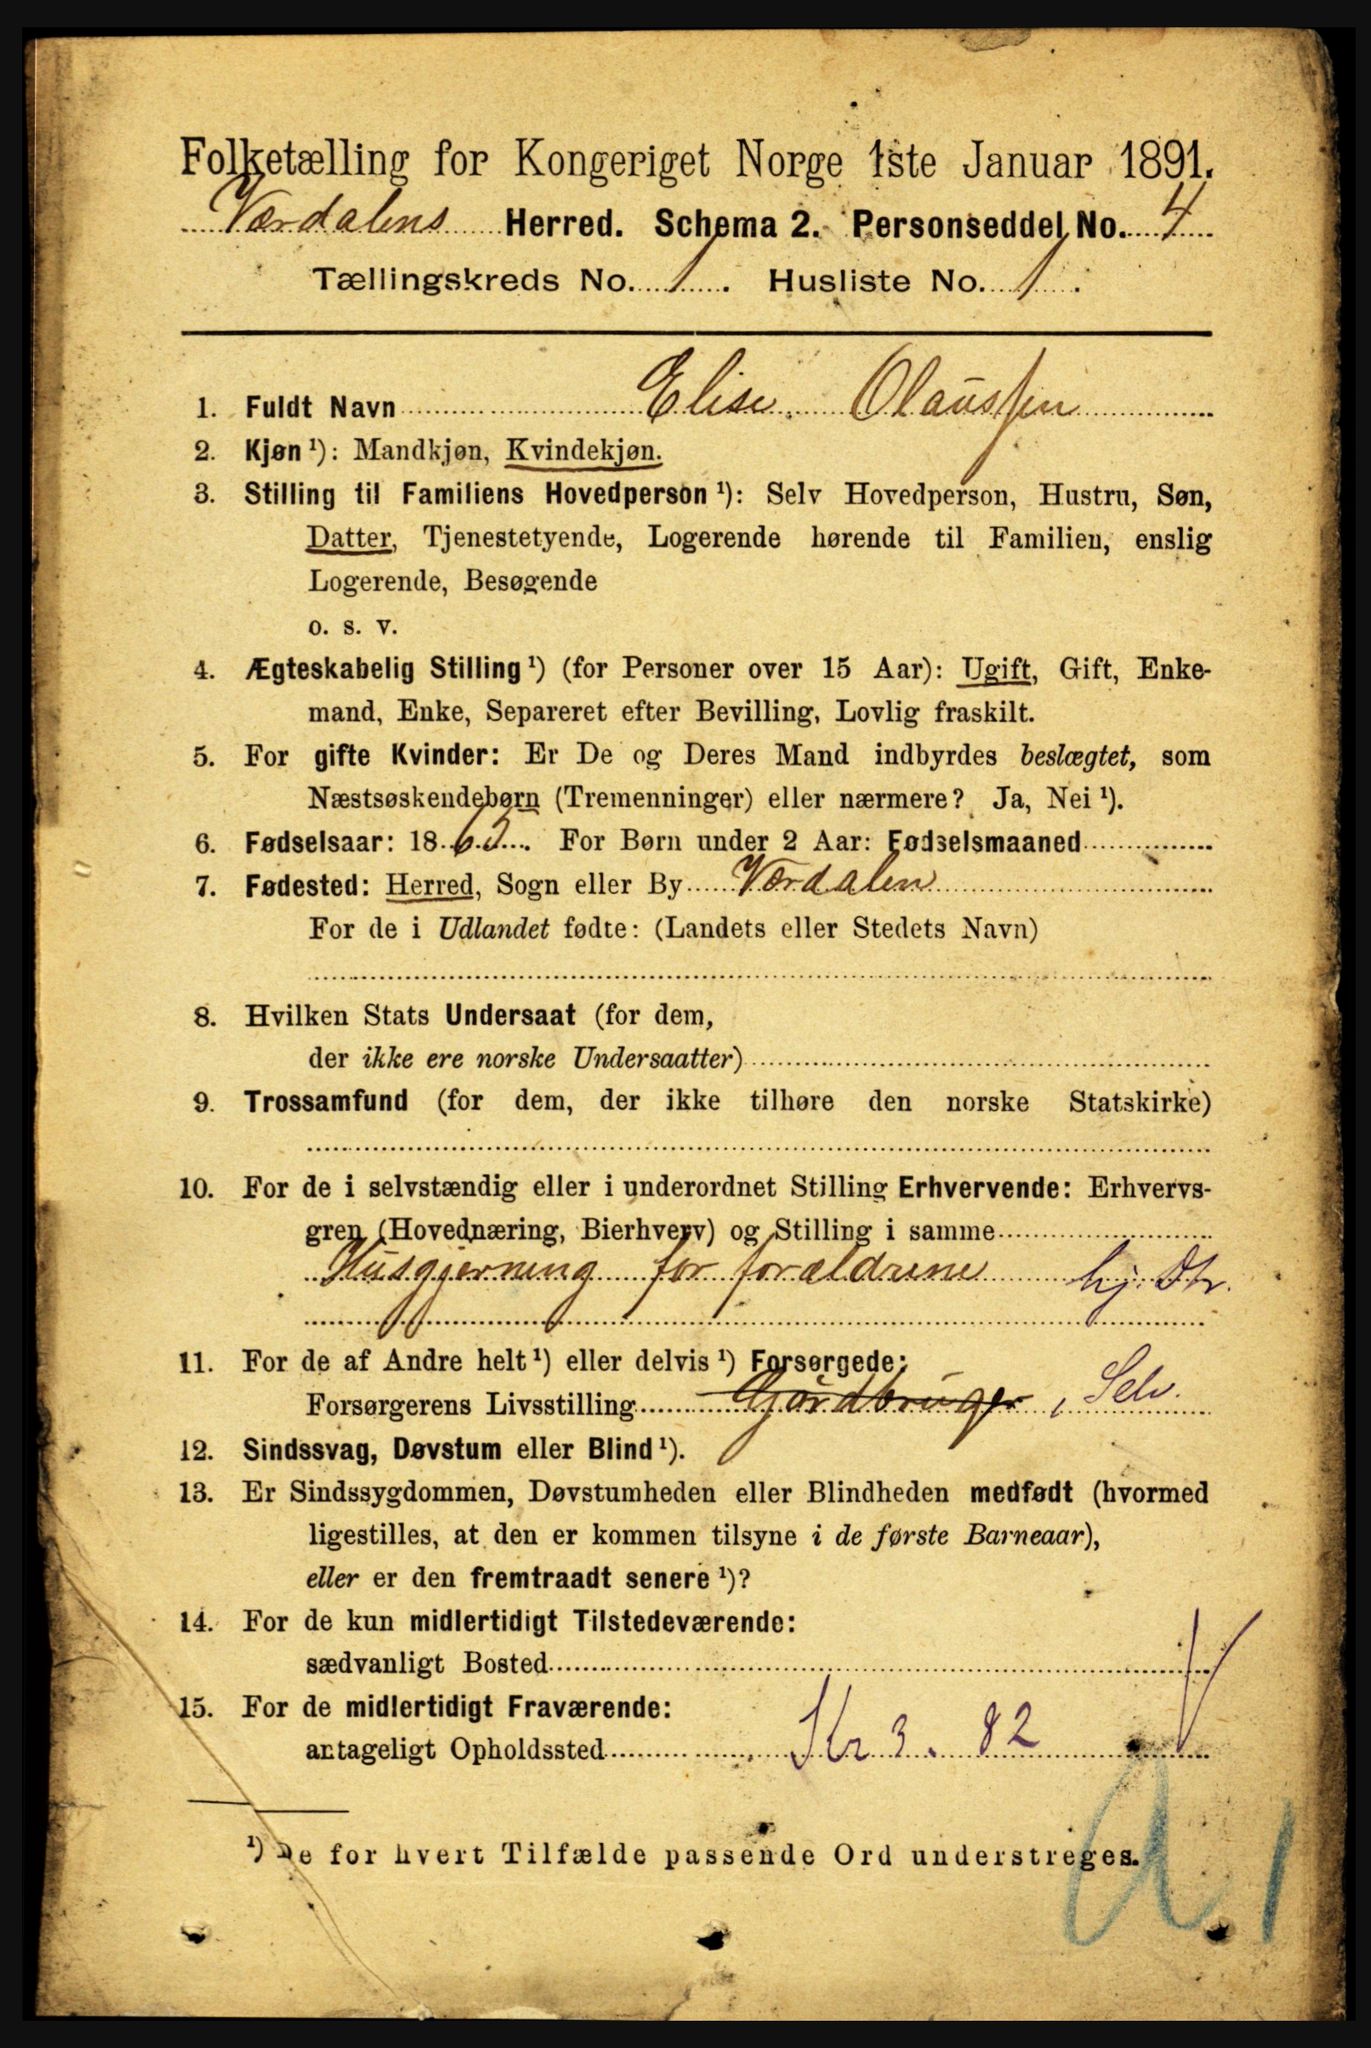 Folketælling for Kongeriget Norge 1ste Januar 1891.
Værdalens Herred. Schema 2. Personseddel No. 4
Tællingskreds No. 1. Husliste No. 1.
1. Fuldt Navn Elise Olaussen
2. Kjøn ¹): Mandkjøn, Kvindekjøn.
3. Stilling til Familiens Hovedperson ¹): Selv Hovedperson, Hustru, Søn,
Datter, Tjenestetyende, Logerende hørende til Familien, enslig
Logerende, Besøgende
o. s. v.
4. Ægteskabelig Stilling ¹) (for Personer over 15 Aar): Ugift, Gift, Enke-
mand, Enke, Separeret efter Bevilling, Lovlig fraskilt.
5. For gifte Kvinder: Er De og Deres Mand indbyrdes beslægtet, som
Næstsøskendebørn (Tremenninger) eller nærmere? Ja, Nei ¹).
6. Fødselsaar: 18 63. For Børn under 2 Aar: Fødselsmaaned
7. Fødested: Herred, Sogn eller By Værdalen
For de i Udlandet fødte: (Landets eller Stedets Navn)
8. Hvilken Stats Undersaat (for dem,
der ikke ere norske Undersaatter)
9. Trossamfund (for dem, der ikke tilhøre den norske Statskirke)
10. For de i selvstændig eller i underordnet Stilling Erhvervende: Erhvervs-
gren (Hovednæring, Bierhverv) og Stilling i samme
Husgjerning for forældrene hj. Dtr.
11. For de af Andre helt ¹) eller delvis ¹) Forsørgede:
Forsørgerens Livsstilling Gårdbruger, Selv.
12. Sindssvag, Døvstum eller Blind ¹).
13. Er Sindssygdommen, Døvstumheden eller Blindheden medfødt (hvormed
ligestilles, at den er kommen tilsyne i de første Barneaar),
eller er den fremtraadt senere ¹)?
14. For de kun midlertidigt Tilstedeværende:
sædvanligt Bosted
15. For de midlertidigt Fraværende:
antageligt Opholdssted Kr 3. 82
¹) De for hvert Tilfælde passende Ord understreges.